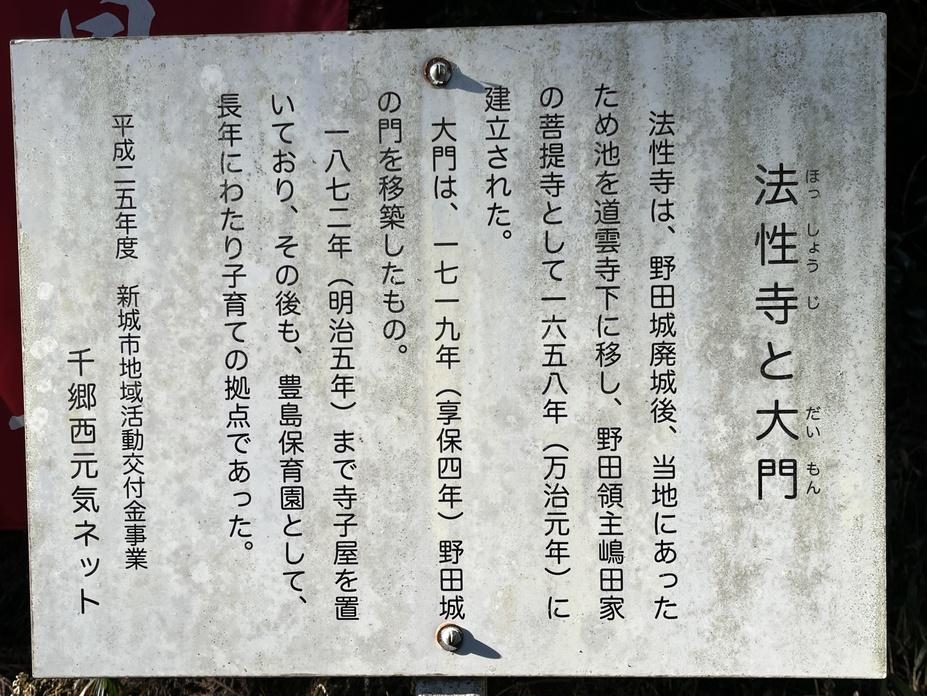 法性寺と大門
ほっしょうじ だいもん
法性寺は、野田城廃城後、当地にあった
ため池を道雲寺下に移し、野田領主嶋田家
の菩提寺として一六五八年（万治元年）に
建立された。
大門は、一七一九年（享保四年）野田城
の門を移築したもの。
一八七二年（明治五年）まで寺子屋を置
いており、その後も、豊島保育園として、
長年にわたり子育ての拠点であった。
平成二五年度　新城市地域活動交付金事業
千郷西元気ネット